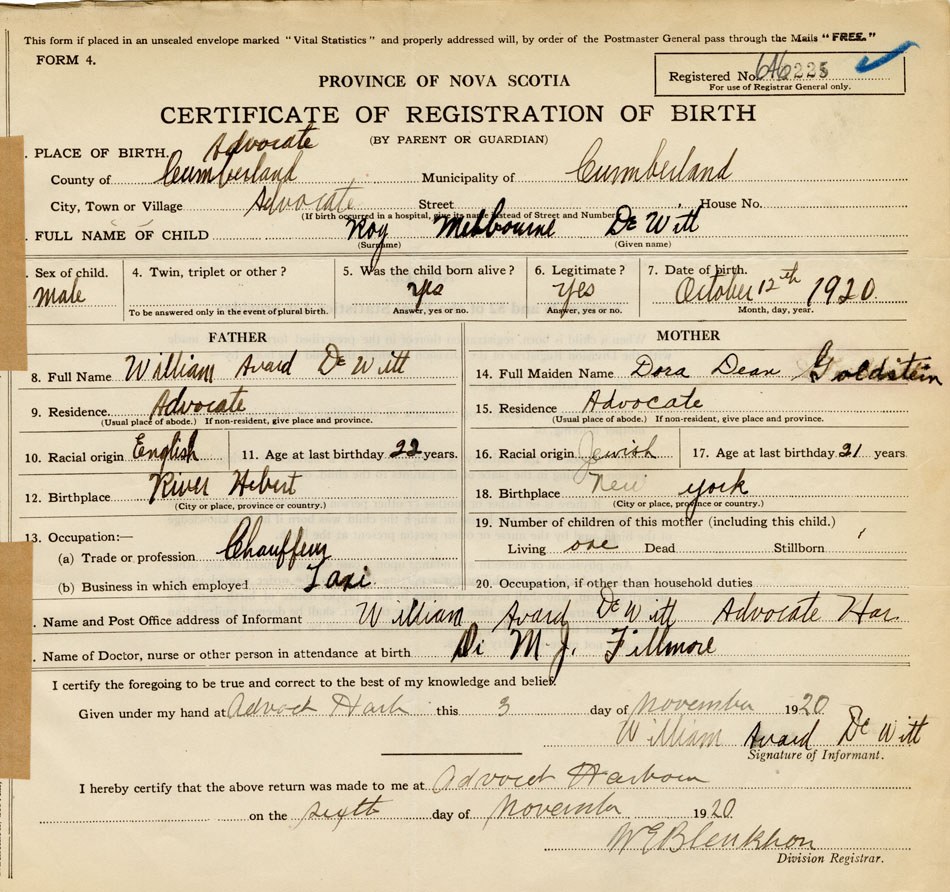 This form if placed in an unsealed envelope marked "Vital Statistics" and properly addressed will, by order of the Postmaster General pass through the Mails "FREE."
FORM 4.
Registered No. 646225
For use of Registrar General only.
PROVINCE OF NOVA SCOTIA
CERTIFICATE OF REGISTRATION OF BIRTH
(BY PARENT OR GUARDIAN)
. PLACE OF BIRTH. Advocate
County of Cumberland Municipality of Cumberland
City, Town or Village Advocate Street House No.
(If birth occurred in a hospital, give its name instead of Street and Number)
. FULL NAME OF CHILD Roy Melbourne De Witt
(Surname) (Given name)
. Sex of child. 4. Twin, triplet or other? 5. Was the child born alive? 6. Legitimate? 7. Date of birth.
Male Yes Yes October 12th 1920
To be answered only in the event of plural birth. Answer, yes or no. Answer, yes or no. Month, day, year.
FATHER MOTHER
8. Full Name William Avard De Witt 14. Full Maiden Name Dora Dean Goldstein
9. Residence. Advocate 15. Residence Advocate
(Usual place of abode.) If non-resident, give place and province. (Usual place of abode.) If non-resident, give place and province.
10. Racial origin English 11. Age at last birthday 22 years. 16. Racial origin Jewish 17. Age at last birthday 21 years
12. Birthplace River Hebert 18. Birthplace New York
(City or place, province or country.) (City or place, province or country.)
13. Occupation:— 19. Number of children of this mother (including this child.)
(a) Trade or profession Chauffeur Living one Dead Stillborn
(b) Business in which employed Taxi 20. Occupation, if other than household duties
. Name and Post Office address of Informant William Avard De Witt Advocate Har
. Name of Doctor, nurse or other person in attendance at birth Dr M. J. Fillmore
I certify the foregoing to be true and correct to the best of my knowledge and belief.
Given under my hand at Advoct Harb this 3 day of November 1920
William Avard De Witt
Signature of Informant.
I hereby certify that the above return was made to me at Advoct Harbour
on the sixth day of November 1920
W E Blenkhon
Division Registrar.